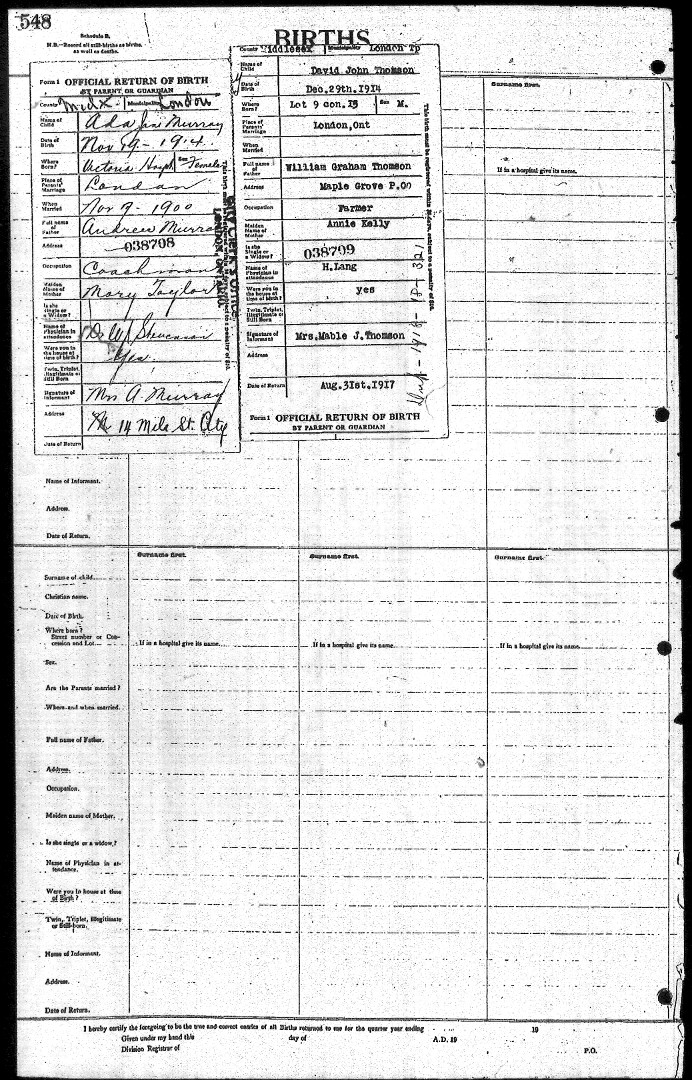 548
Schedule B.
N.B.—Record all still-births as births, as well as deaths.
BIRTHS
Form 1 OFFICIAL RETURN OF BIRTH
BY PARENT OR GUARDIAN
County Midx Municipality London
Name of Child Ada Murray
Date of Birth Nov 19 - 1914
Where Born? Victoria Hospt. Sex Female
Place of Parents' Marriage London
When Married Nov 9 - 1900
Full name of Father Andrew Murray
Address
038708
Occupation Coachman
Maiden Name of Mother Mary Taylor
Is she single or a Widow?
Name of Physician in attendance W Stevenson
Were you in the house at time of birth? Yes
Twin, Triplet, Illegitimate or Still Born
Signature of Informant Mrs A. Murray
Address 14 Mila St. City
Date of Return
CITY CLERK'S OFFICE
LONDON, ONTARIO
County Middlesex Municipality London Tp
Name of Child David John Thomson
Date of Birth Dec.29th.1914
Where Born? Lot 9 con.13 Sex M.
Place of Parents' Marriage London,Ont
When Married
Full name of Father William Graham Thomson
Address Maple Grove P.OO
Occupation Farmer
Maiden Name of Mother Annie Kelly
Is she Single or a Widow?
038709
Name of Physician in attendance H.Lang
Were you in the house at time of birth? yes
Twin, Triplet, Illegitimate or Still Born
Signature of Informant Mrs.Mable J.Thomson
Address
Date of Return Aug.31st.1917
Form 1 OFFICIAL RETURN OF BIRTH
BY PARENT OR GUARDIAN
This birth must be registered within 30 days, subject to a penalty of $10.
1918
321
Surname first.
If in a hospital give its name.
Name of Informant.
Address.
Date of Return.
Surname first. Surname first. Surname first.
Surname of child
Christian name.
Date of Birth.
Where born?
Street number or Concession and Lot
If in a hospital give its name. If in a hospital give its name. If in a hospital give its name.
Sex.
Are the Parents married?
Where and when married.
Full name of Father.
Address.
Occupation.
Maiden name of Mother.
Is she single or a widow?
Name of Physician in attendance.
Were you in house at time of Birth?
Twin, Triplet, Illegitimate or Still-born.
Name of Informant.
Address.
Date of Return.
I hereby certify the foregoing to be the true and correct entries of all Births returned to me for the quarter year ending 19
Given under my hand this day of A.D. 19
Division Registrar of P.O.